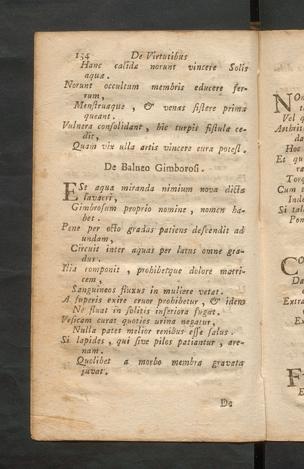 134 De Virtutibus
Hanc calidæ norunt vincere Solis
aquæ.
Norunt occultum membris educere fer-
rum,
Menstruasque, & venas sistere prima
queant.
Vulnera consolidant, hic turpis fistula ce-
dit,
Quam vix ulla artis vincere cura potest.
De Balneo Gimborosi.
ESt aqua miranda nimium nova dicta
lavacri,
Gimborosum proprio nomine, nomen ha-
bet.
Pene per octo gradas patiens descendit ad
undam,
Circuit inter aquas per latus omne gra-
dus.
Ilia componit, prohibetque dolore matri-
cem,
Sanguineos fluxus in muliere vetat.
A superis exire cruor prohibetur, & idem
Ne fluat in solitis inferiora fugat.
Vesicam curat quoties urina negatur,
Nulla pater melior renibus esse salus.
Si lapides, qui sive pilos patiantur, are-
nam.
Quolibet a morbo membra gravata
juvat.
De
No
Vel q
Arthrit
da
Hoc
Et qu
ra
Torq
Cum
Inde
Si tal
Pon
Co
Da
Extra
Ex